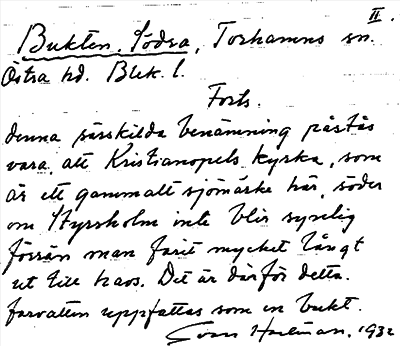 II.
Bukten, Södra, Torhamns sn.
Östra hd. Blek. l.
Forts.
denna särskilda benämning påstås
vara, att Kristianopels kyrka, som
är ett gammalt sjömärke här, söder
om Styrsholm inte blir synlig
förrän man farit mycket långt
ut till havs. Det är därför detta
farvatten uppfattas som en bukt.
Sven Hallman. 1932